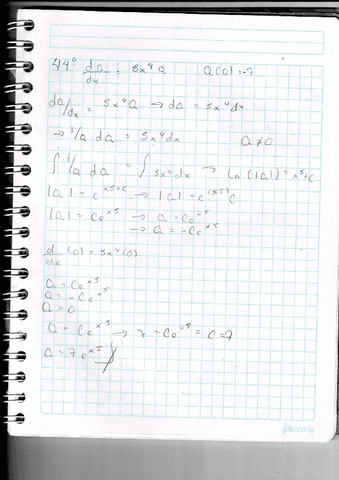 44° da/dx = 5x⁴a a(0)=-7
da/dx = 5x⁴a → da = 5x⁴dx
→ 1/a da = 5x⁴dx a≠0
∫ 1/a da = ∫ 5x⁴dx → Ln(|a|) = x⁵+c
|a| = e^(x⁵+c) → |a| = e^(x⁵)c
|a| = Ce^x⁵ → a = Ce^x⁵
→ a = -Ce^x⁵
d/dx (0) = 5x⁴(0)
a = Ce^x⁵
a = -Ce^x⁵
a = 0
a = Ce^x⁵ → 7 = Ce^0⁵ = C=7
a = 7e^x⁵